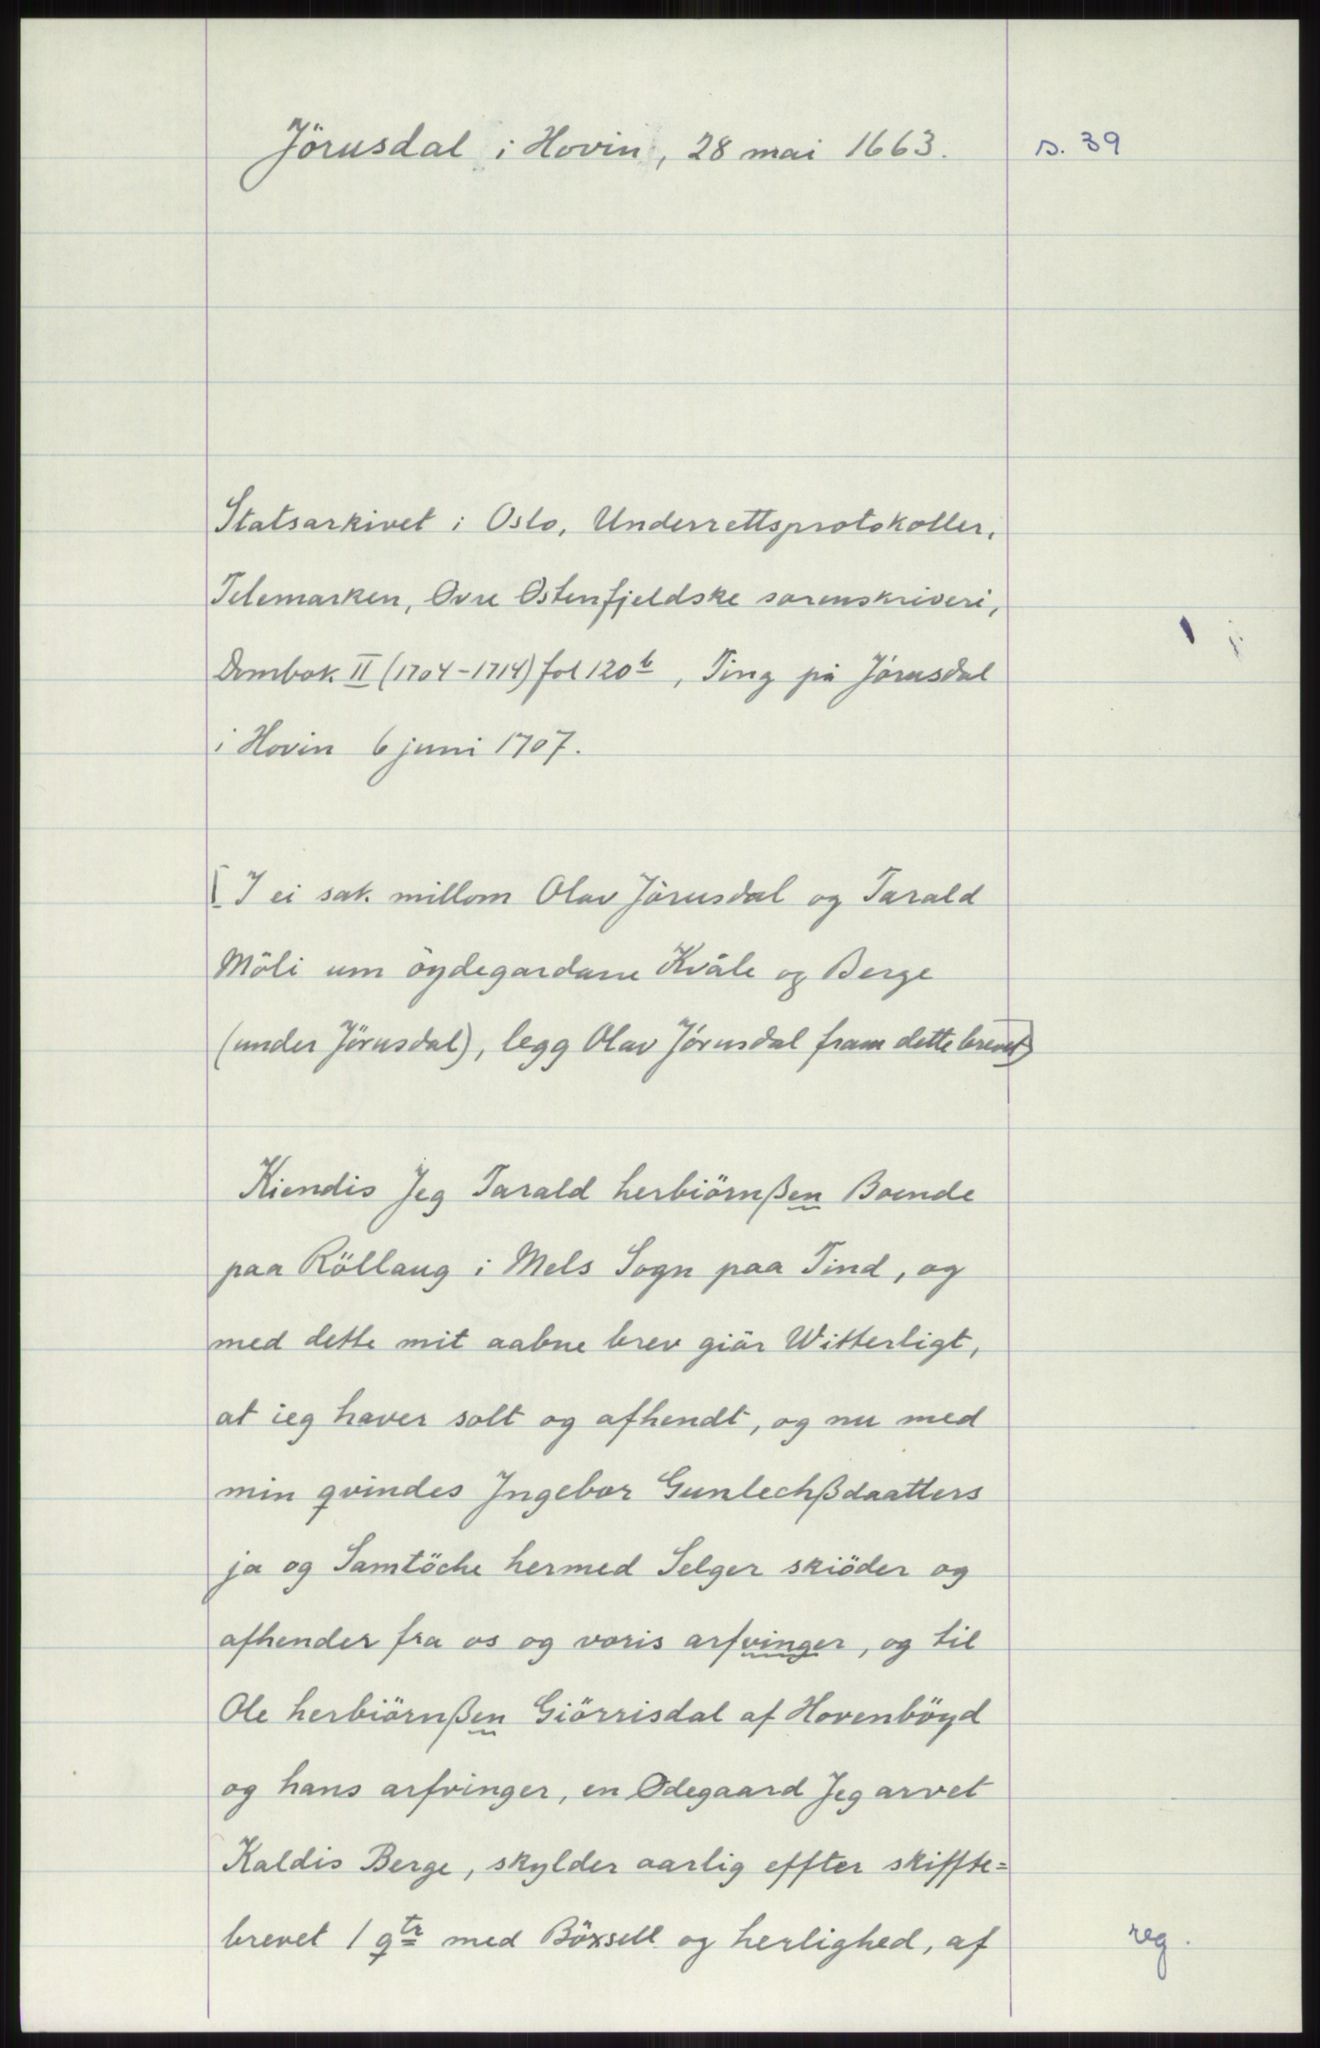 Jörusdal i Hovin, 28 mai 1663.
s. 39
Statsarkivet i Oslo, Underrettsprotokoller,
Telemarken, Øvre Østenfjeldske sorenskriveri,
Dombok II (1704-1714) fol 120b, Ting på Jörusdal
i Hovin 6 juni 1707.
[I ei sak millom Olav Jörusdal og Tarald
Möli um öydegardane Kvåle og Berge
(under Jörusdal), legg Olav Jörusdal fram dette brevet]
Kiendis Jeg Tarald herbiörnßen Boende
paa Röllaug i Mels Sogn paa Tind, og
med dette mit aabne brev giör Witterligt,
at ieg haver solt og afhendt, og nu med
min qvindes Ingebor Gunlechßdaatters
ja og Samtöche hermed Selger skiöder og
afhender fra os og voris arfvinger, og til
Ole herbiörnßen Giörrisdal af Hovenböyd
og hans arfvinger, en Ødegaard Jeg arvet
Kaldis Berge, skylder aarlig effter skiffte=
brevet 1 qtr med Böxsell og herlighed, af
reg.